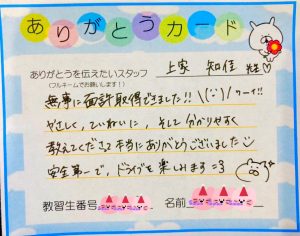 ありがとうカード
ありがとうを伝えたいスタッフ
(フルネームでお願いします!)
上家 知佳 先生♡
無事に免許取得できました!! \(∵)/ワーイ!!
やさしく、ていねいに、そして分かりやすく
教えてくださって本当にありがとうございました
安全第一で、ドライブを楽しみます =3
教習生番号
名前